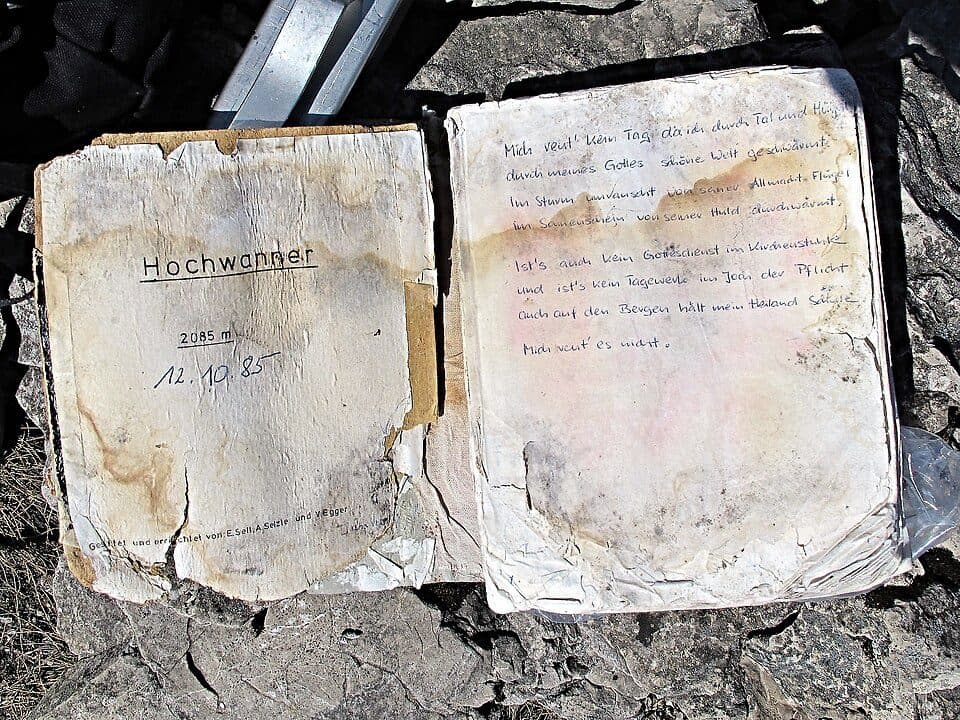 Hochwanner
2085 m
12.10.85
Gestiftet und errichtet von E.Sell, A.Selzle und V.Egger
Mich reut' kein Tag da ich durch Tal und Hügel
durch meines Gottes schöne Welt geschwärmt
Im Sturm umrauscht von seiner Allmacht Flügel
im Sonnenschein von seiner Huld durchwärmt.
Ist's auch kein Gottesdienst im Kirchenstuhle
und ist's kein Tagewerk im Joch der Pflicht
auch auf den Bergen hält mein Heiland Schule
Mich reut es nicht.